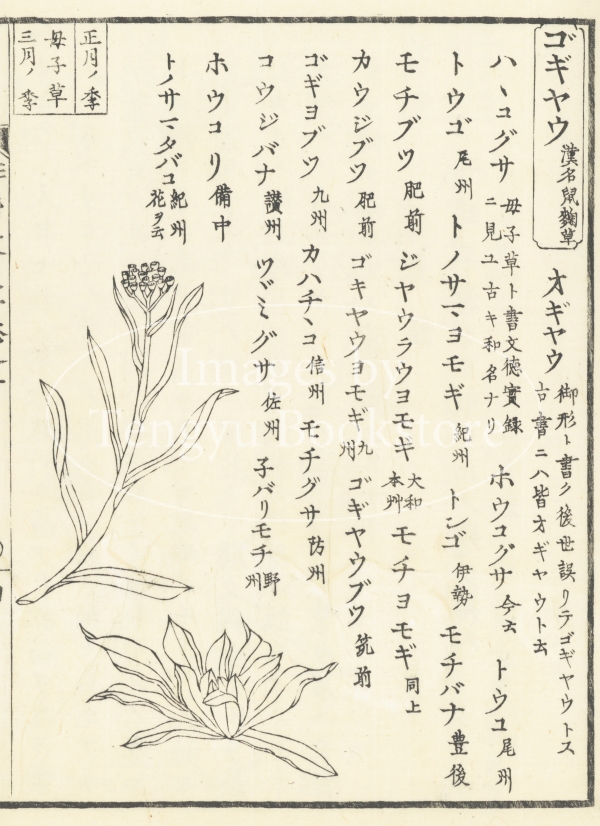 正月ノ季
母子草
三月ノ季
ゴギヤウ 漢名鼠麴草
オギヤウ 御形ト書ク後世誤リテゴギヤウトス
古書ニハ皆オギヤウト云
ハヽコグサ 母子草ト書文徳實録
ニ見ユ古キ和名ナリ
ホウコグサ 今云 トウコ 尾州
トウゴ 尾州 トノサマヨモギ 紀州 トンゴ 伊勢 モチバナ 豊後
モチブツ 肥前 ジヤウラウヨモギ 大和
本艸 モチヨモギ 同上
カウジブツ 肥前 ゴキヤウヨモギ 九州 ゴギヤウブツ 筑前
ゴギヨブツ 九州 カハチヽコ 信州 モチグサ 防州
コウジバナ 讃州 ツヾミグサ 佐州 子バリモチ 野州
ホウコリ 備中
トノサマタバコ 紀州
花ヲ云
Images by
Tengyu Bookstore